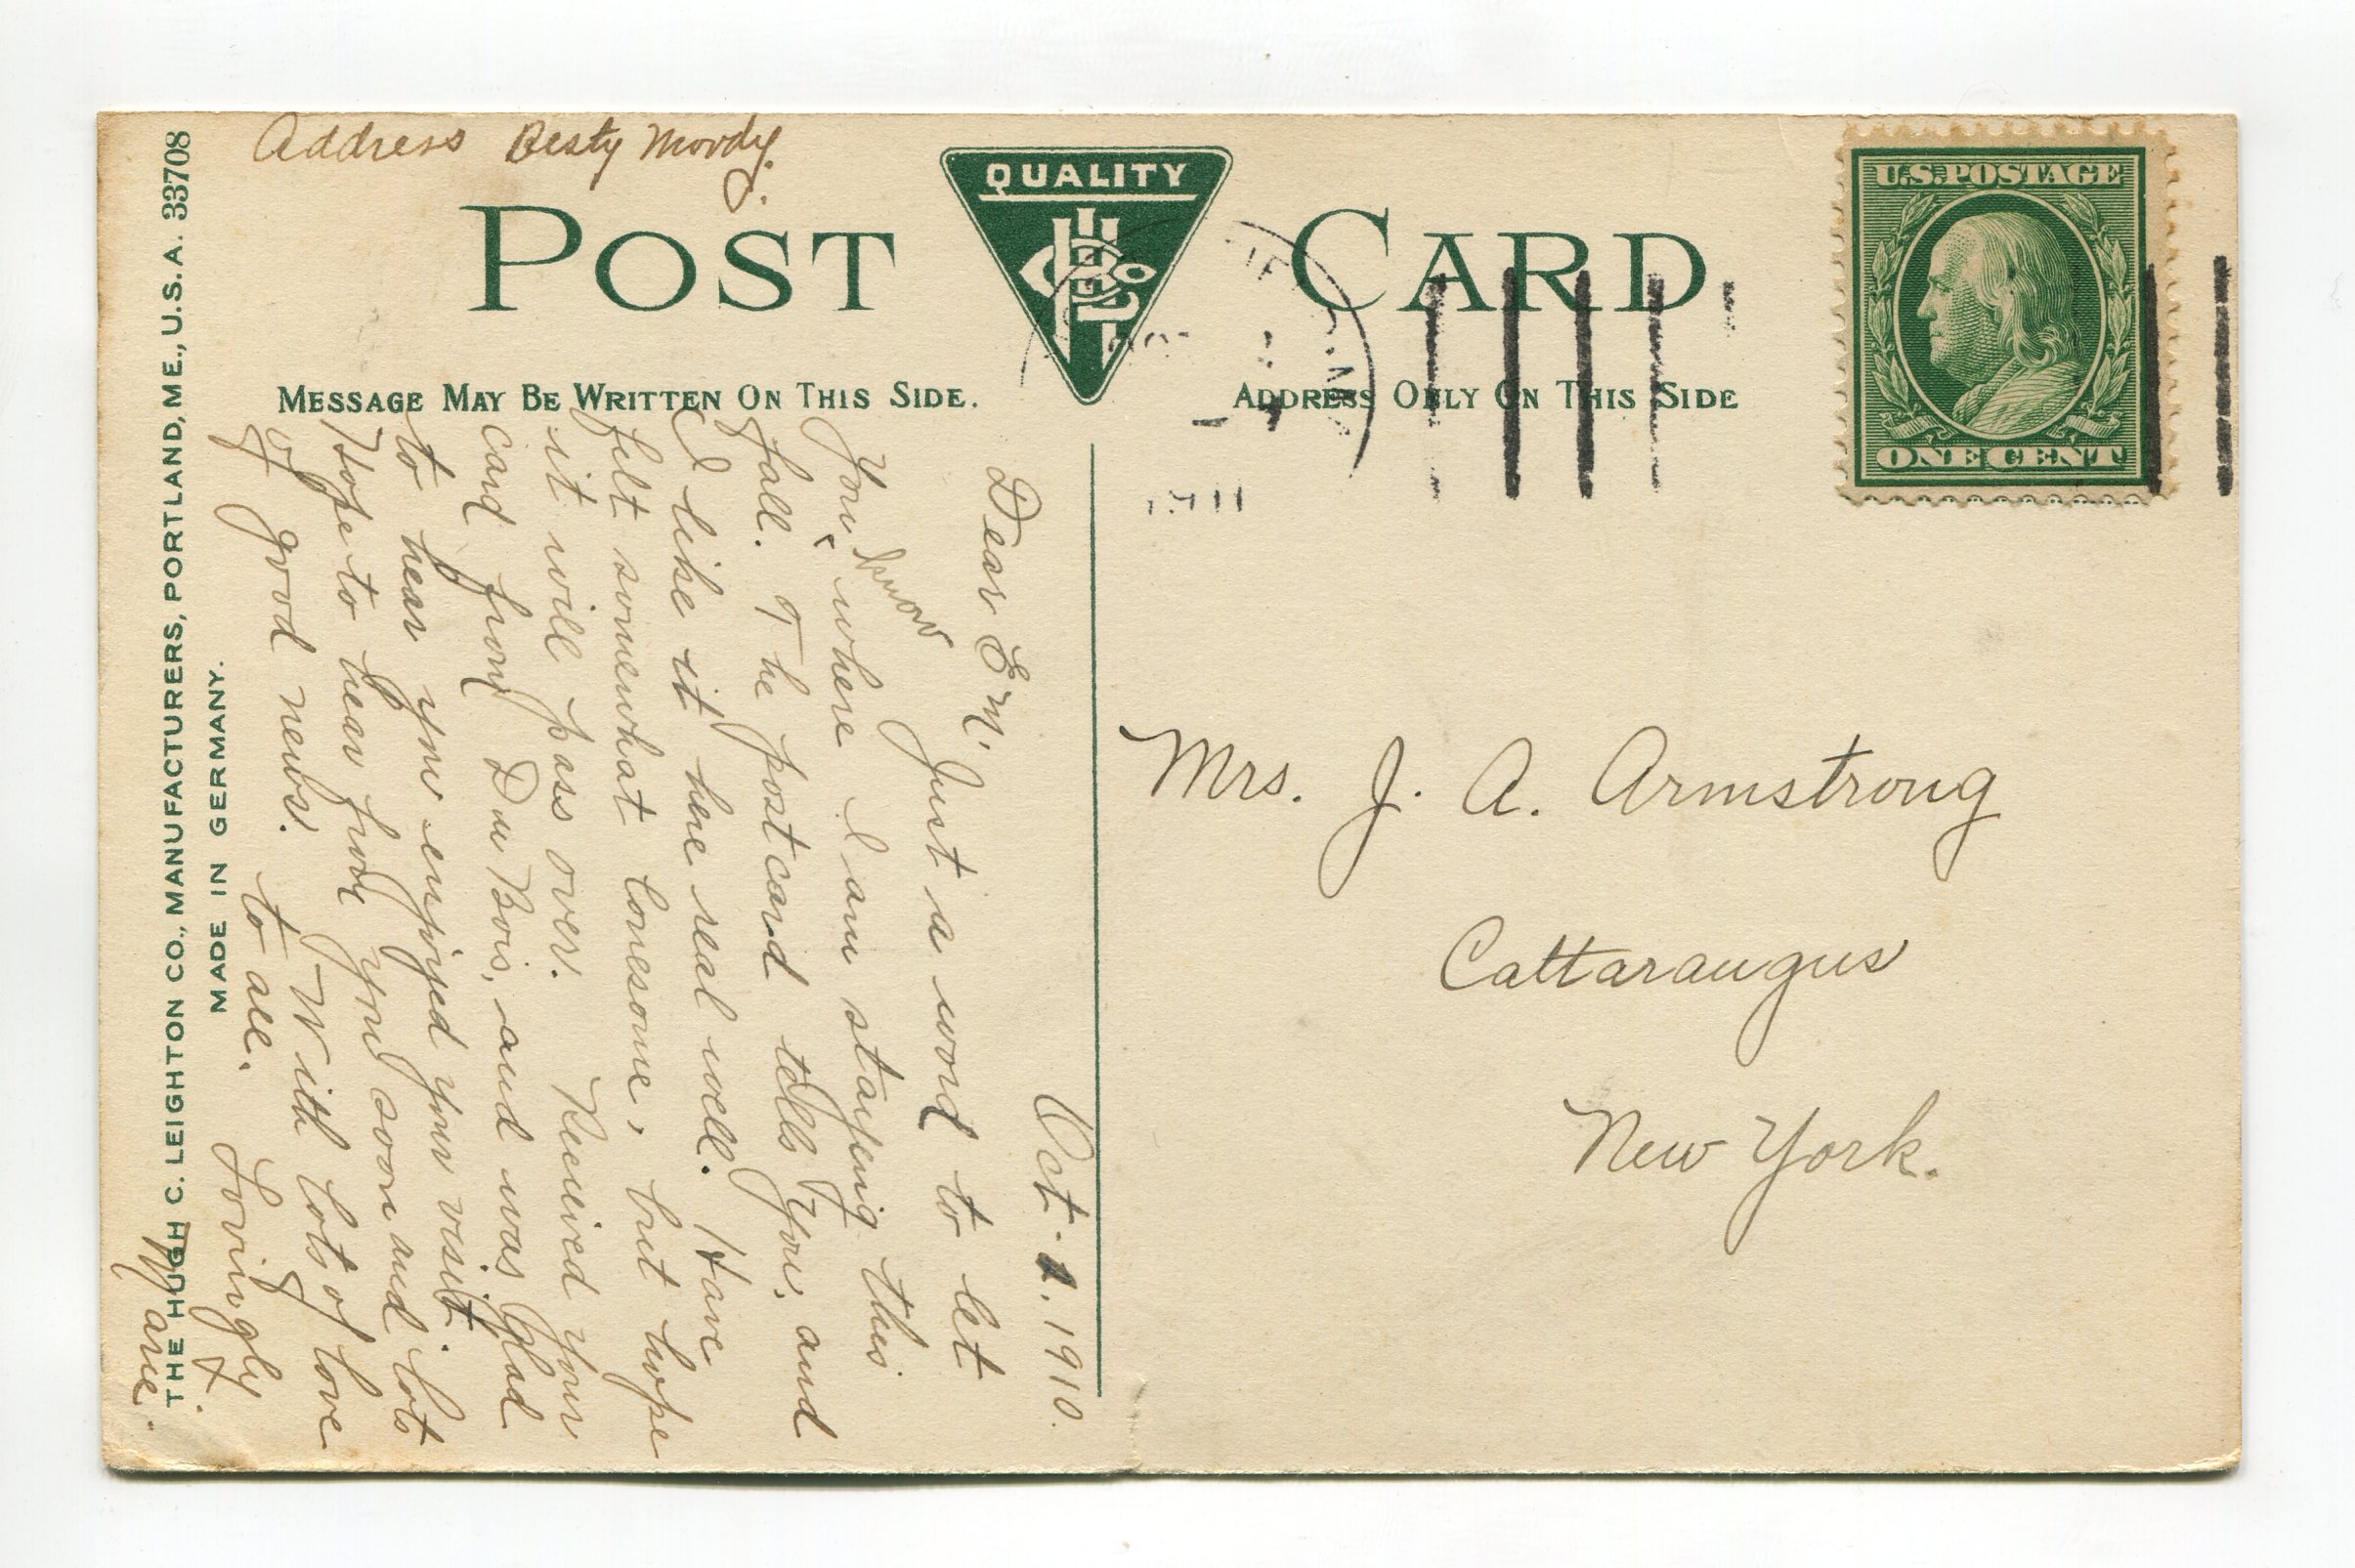 Address Besty Moody.
POST CARD
QUALITY
U.S. POSTAGE
ONE CENT
MESSAGE MAY BE WRITTEN ON THIS SIDE.
ADDRESS ONLY ON THIS SIDE
Oct. 1. 1910.
Dear E M.
Just a word to let
you know where I am staying this
fall. The post card tells you, and
I like it here real well. Have
felt somewhat lonesome, but hope
it will pass over. Received your
card from Du Bois, and was glad
to hear you enjoyed your visit.
Hope to hear from you soon and lots
of good news. With lots of love
to all. Lovingly
Mrs. J. A. Armstrong
Cattaraugus
New York.
THE HUGH C. LEIGHTON CO., MANUFACTURERS, PORTLAND, ME., U.S.A. 33708
MADE IN GERMANY.